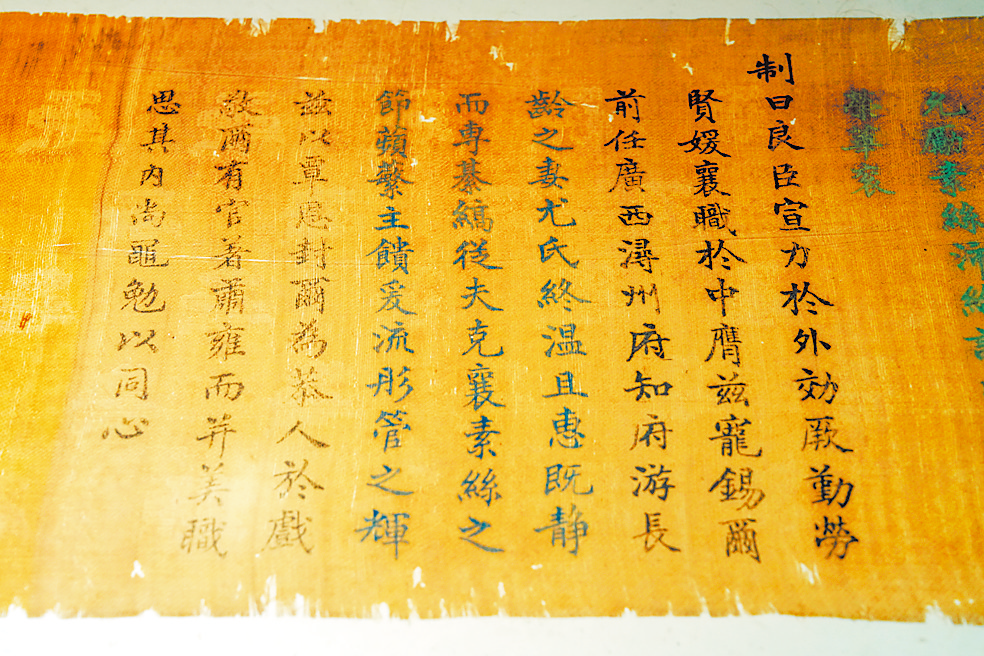 允勵素絲
龍章褒
制曰良臣宣力於外効厥勤勞
賢媛襄職於中膺兹寵錫爾
前任廣西潯州府知府游長
齡之妻尤氏終温且惠既静
而専綦縞從夫克襄素絲之
節蘋蘩主饋爰流彤管之輝
兹以覃恩封爾為恭人於戲
敬爾有官著肅雍而并美職
思其内尚黽勉以同心